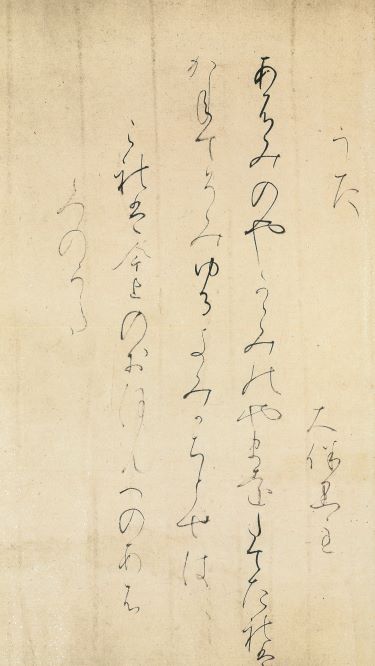 うた
大伴黒主
あふみのやかゝみのやまをたてたれは
かねてそみゆるきみかちとせは
これは今上のおほんへのあふ
みのうた